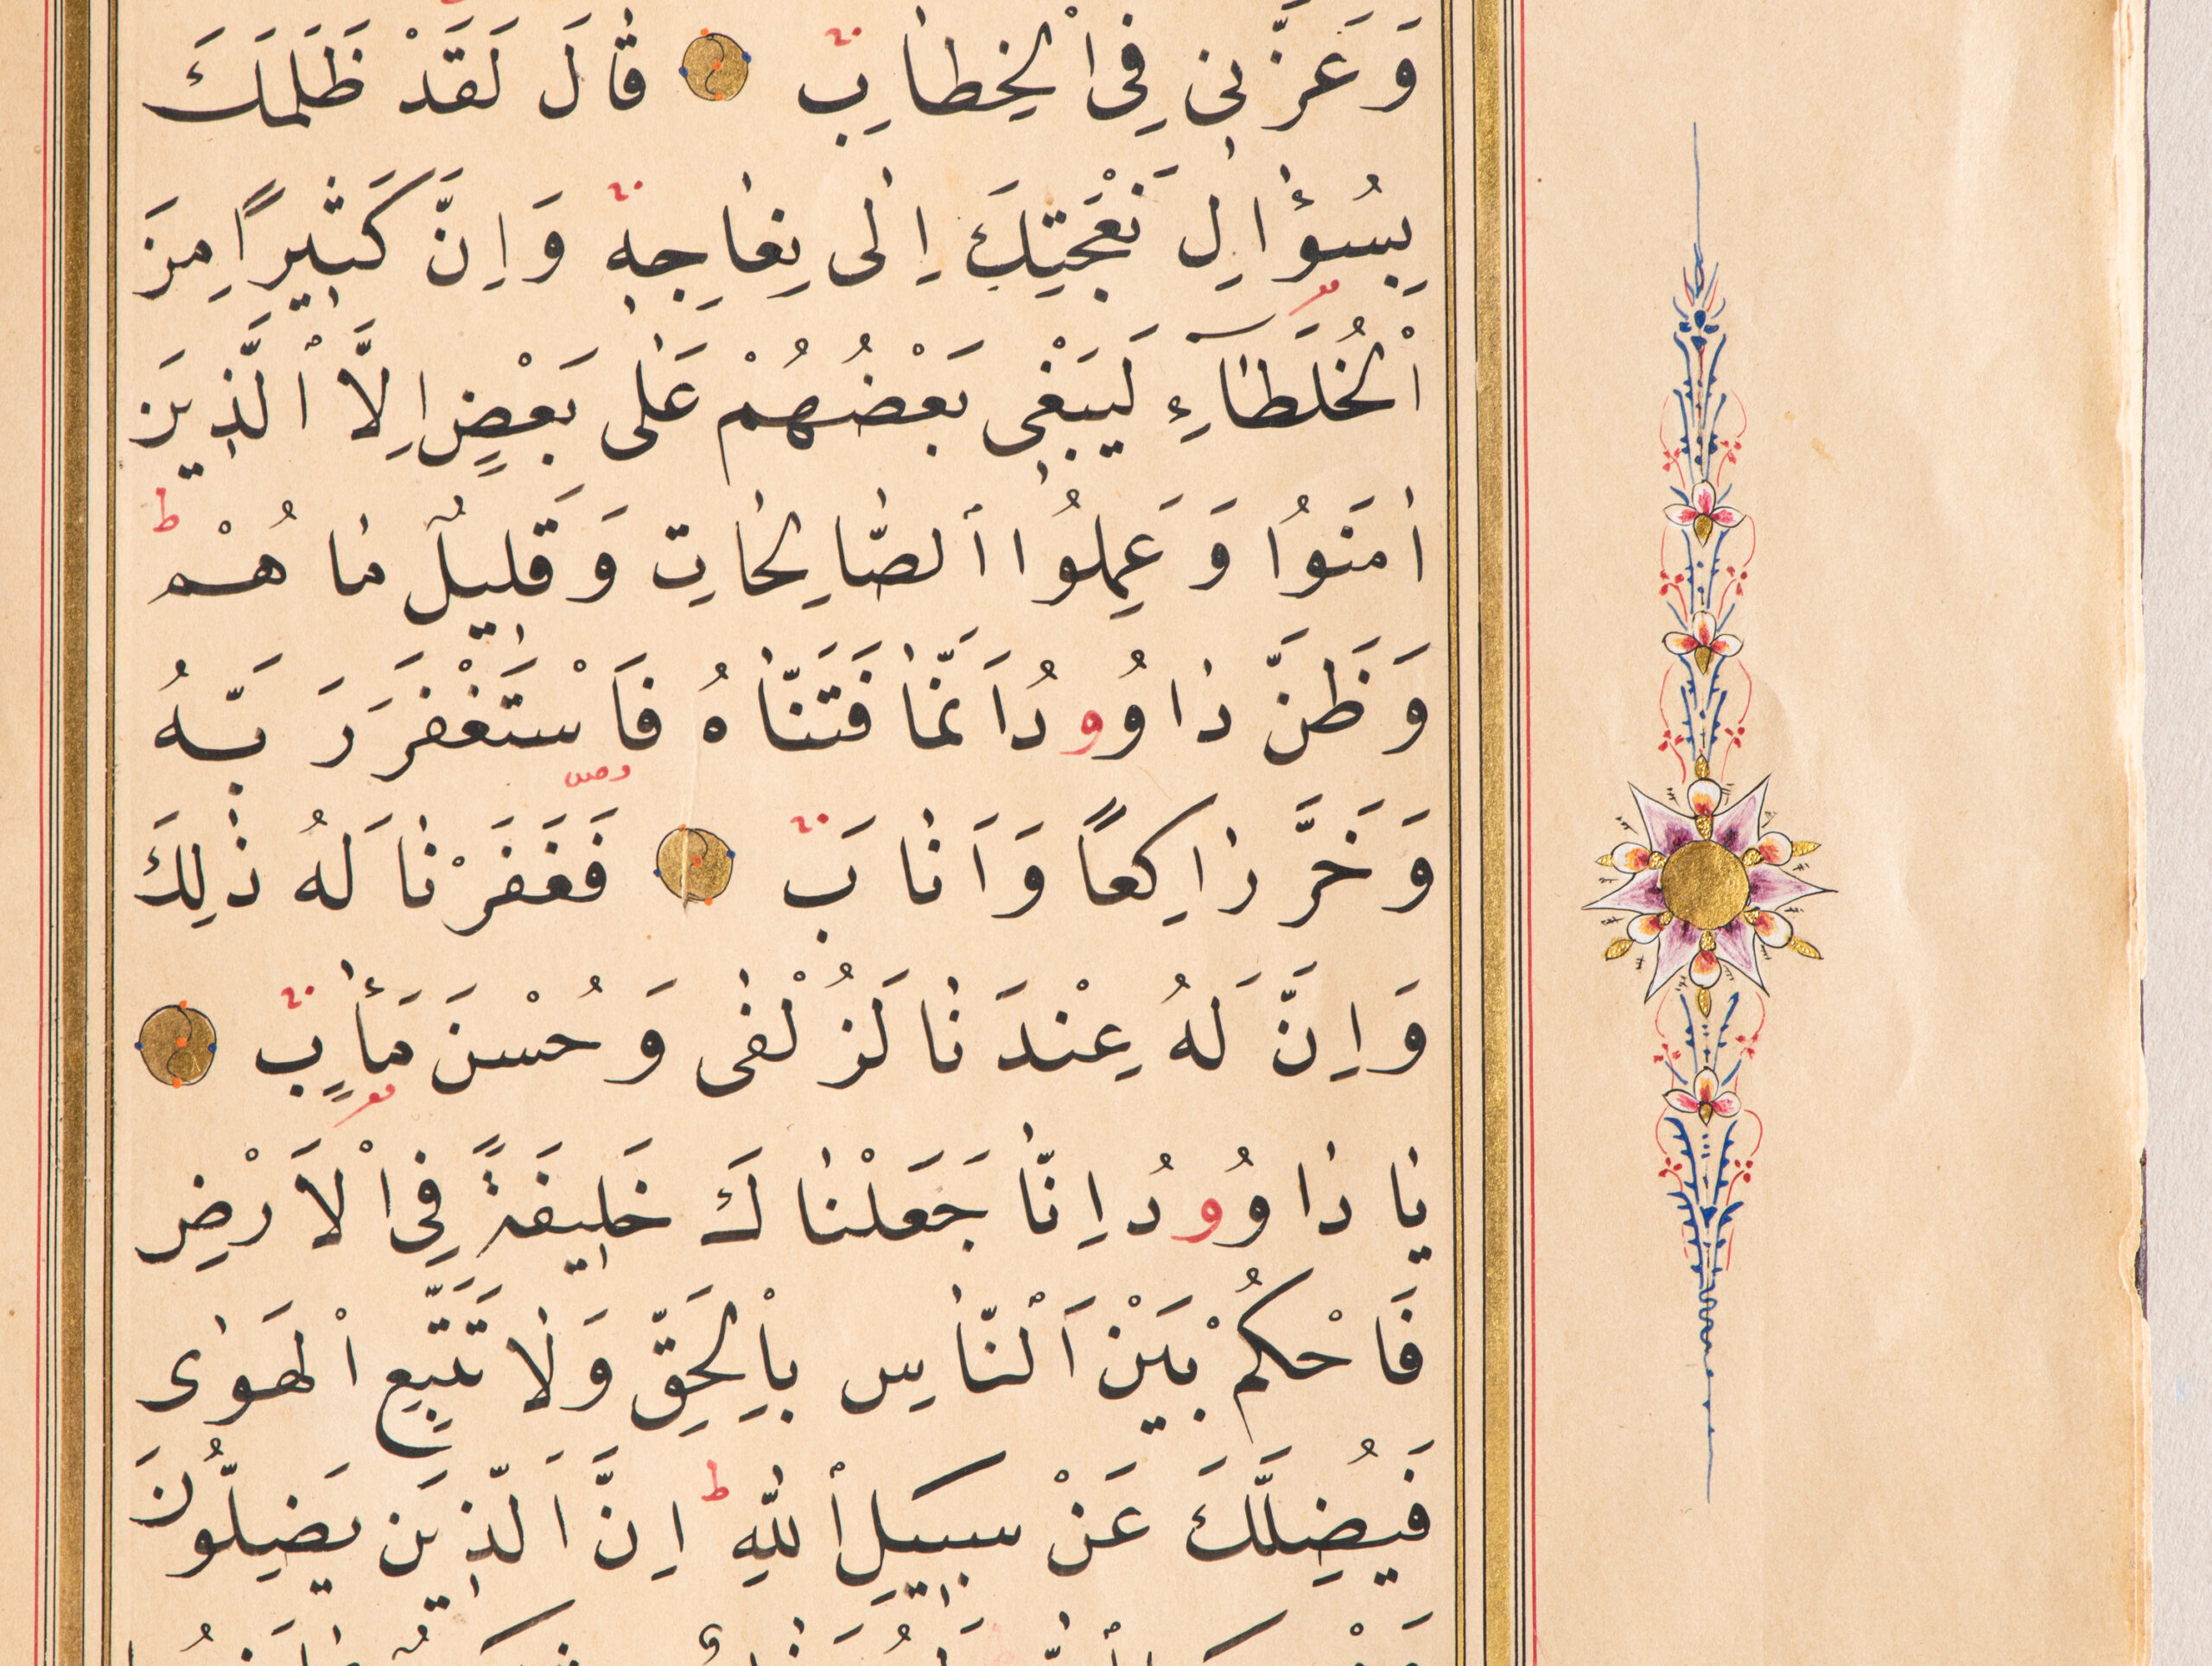 وَعَزَّنٖى فِى الْخِطَابِ قَالَ لَقَدْ ظَلَمَكَ
بِسُؤَالِ نَعْجَتِكَ اِلٰى نِعَاجِهٖ وَاِنَّ كَثٖيرًا مِنَ
الْخُلَطَآءِ لَيَبْغٖى بَعْضُهُمْ عَلٰى بَعْضٍ اِلَّا الَّذٖينَ
اٰمَنُوا وَعَمِلُوا الصَّالِحَاتِ وَقَلٖيلٌ مَا هُمْ ط
وَظَنَّ دَاوُودُ اَنَّمَا فَتَنَّاهُ فَاسْتَغْفَرَ رَبَّهُ
وَخَرَّ رَاكِعًا وَاَنَابَ فَغَفَرْنَا لَهُ ذٰلِكَ
وَاِنَّ لَهُ عِنْدَنَا لَزُلْفٰى وَحُسْنَ مَاٰبٍ
يَا دَاوُودُ اِنَّا جَعَلْنَاكَ خَلٖيفَةً فِى الْاَرْضِ
فَاحْكُمْ بَيْنَ النَّاسِ بِالْحَقِّ وَلَا تَتَّبِعِ الْهَوٰى
فَيُضِلَّكَ عَنْ سَبٖيلِ اللّٰهِ ط اِنَّ الَّذٖينَ يَضِلُّونَ